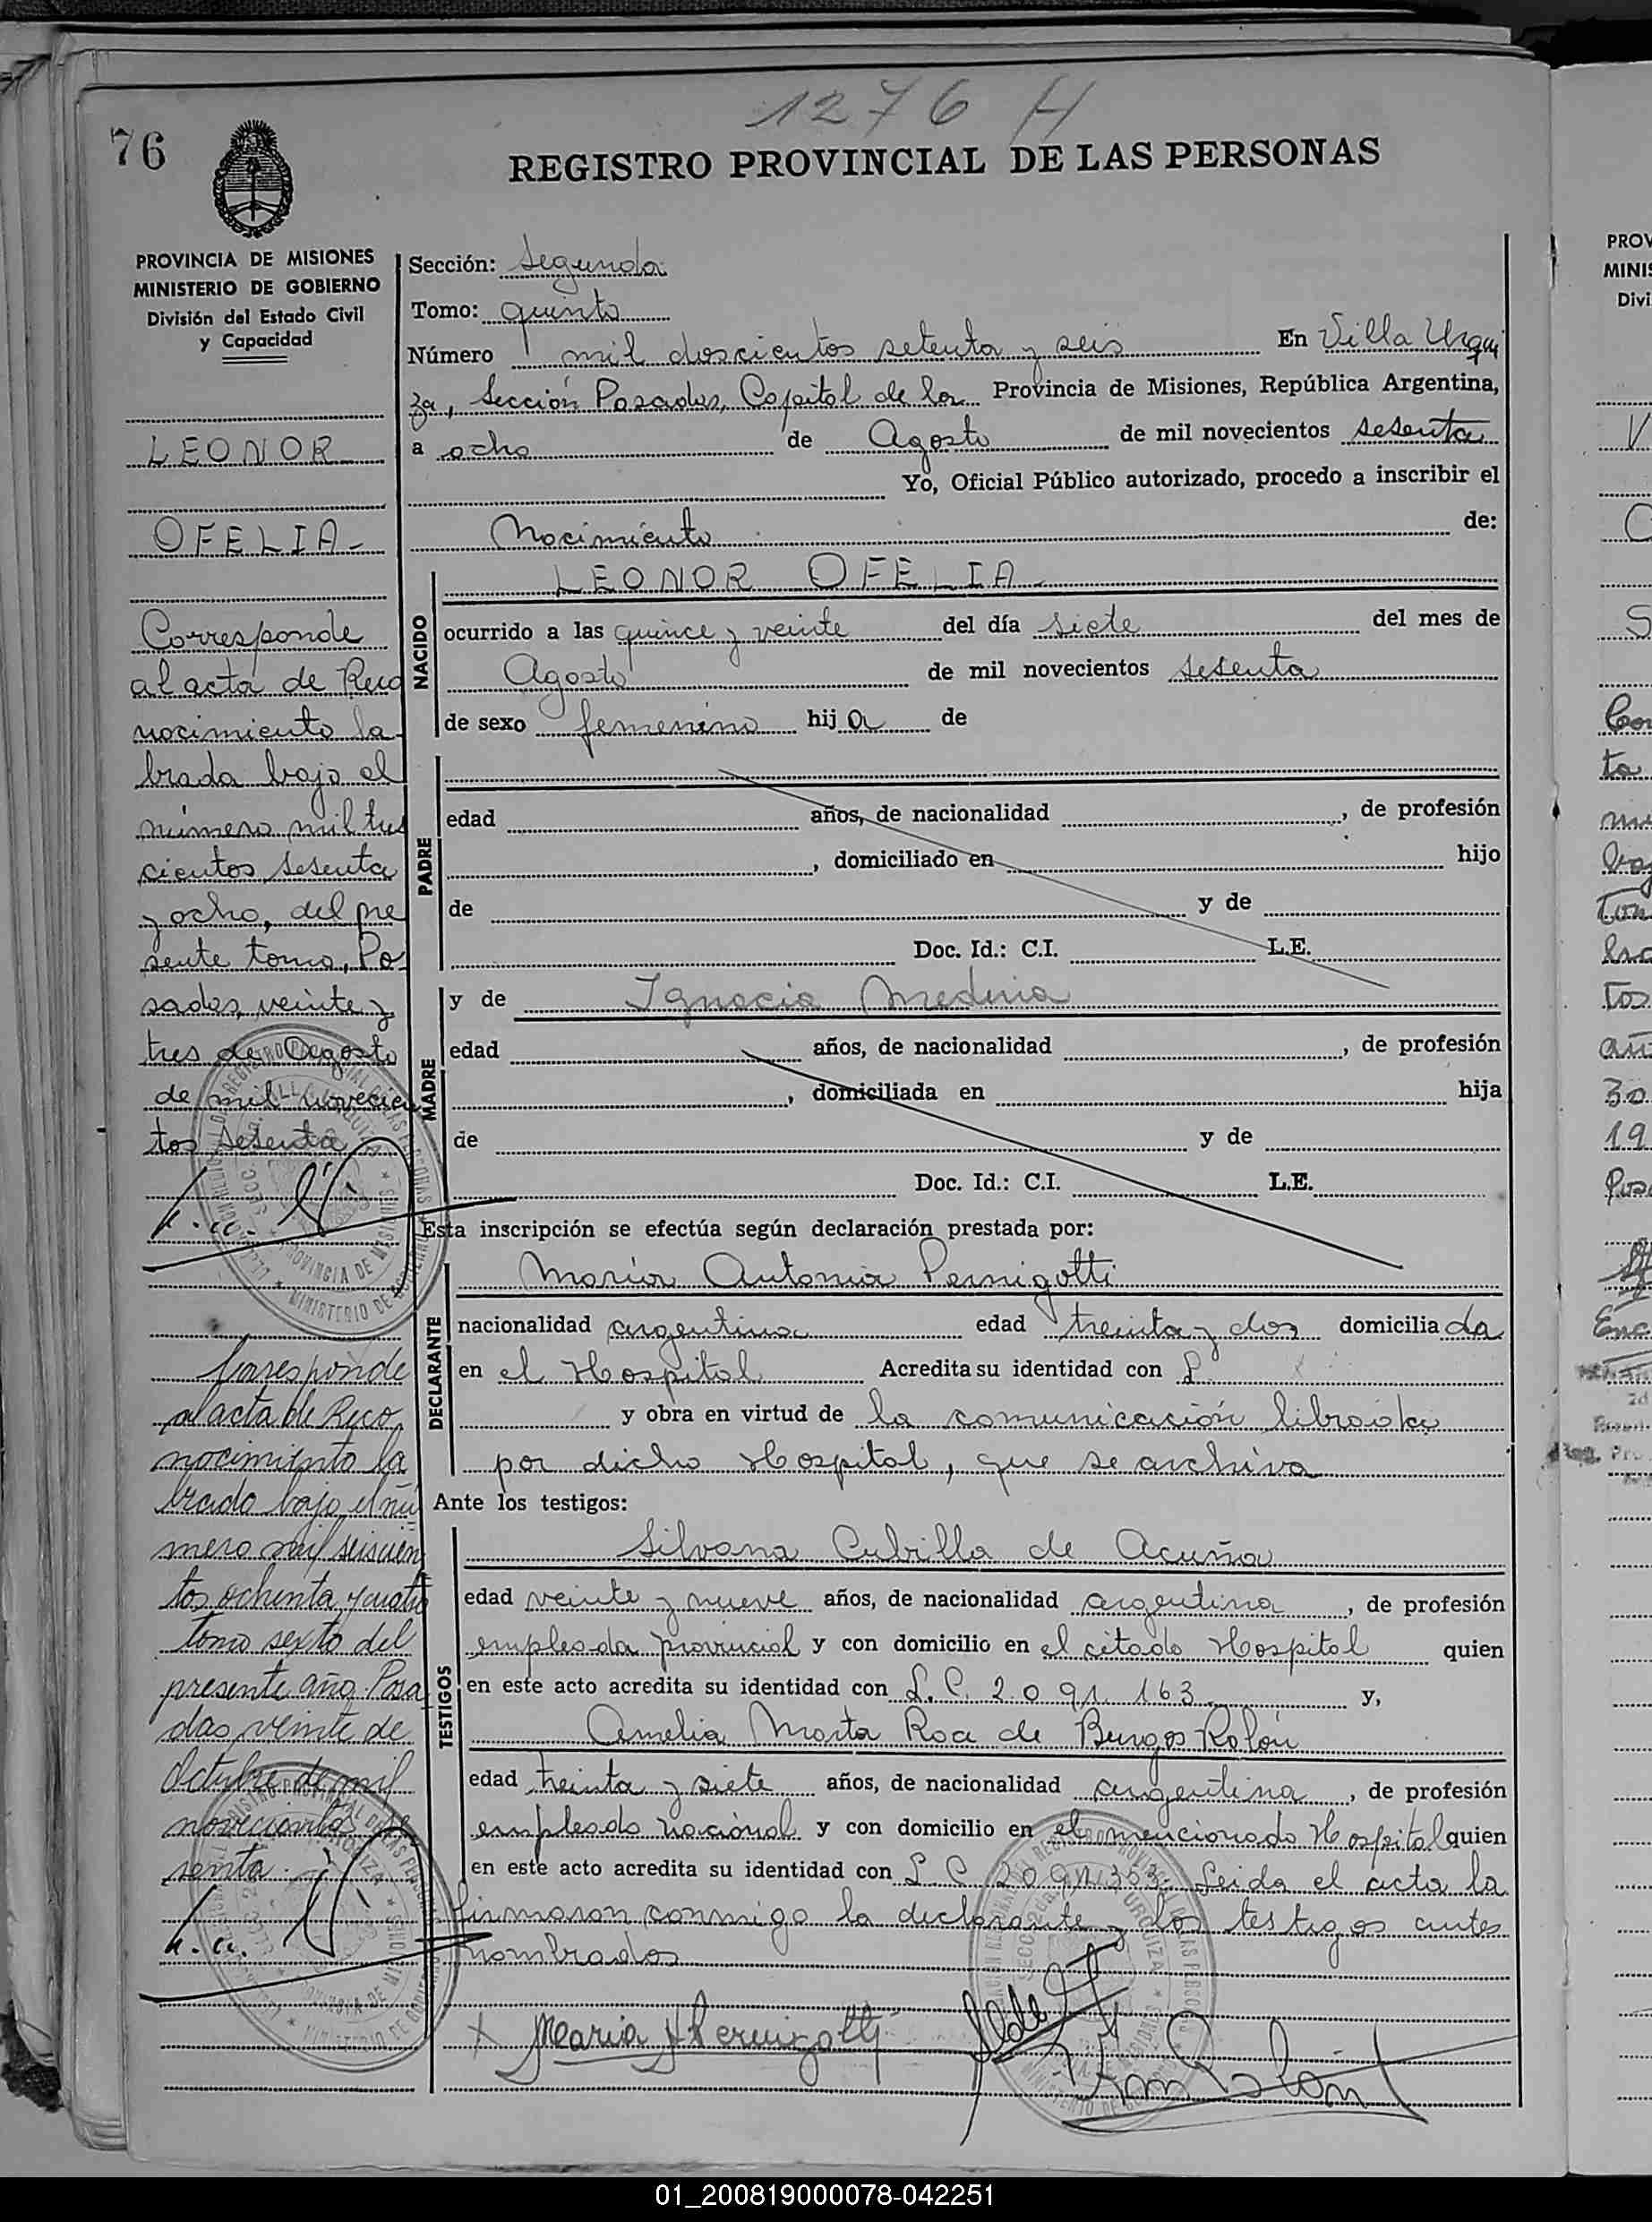 1276 H
76
REGISTRO PROVINCIAL DE LAS PERSONAS
PROVINCIA DE MISIONES
MINISTERIO DE GOBIERNO
División del Estado Civil
y Capacidad
LEONOR
OFELIA-
Corresponde
al acta de Reco
nocimiento la-
brada bajo el
número mil tres
cientos sesenta
y ocho, del pre
sente tomo, Po-
sadas, veinte y
tres de Agosto
de mil novecien
tos sesenta
Corresponde
al acta de Reco
nocimiento la
brado bajo el nú
mero mil seiscien
tos ochenta y cuatro
tomo sexto del
presente año, Posa
das, veinte de
Octubre de mil
novecientos se
senta.
Sección: Segunda
Tomo: quinto
Número mil doscientos setenta y seis En Villa Urqui
za, Sección Posadas, Capital de la Provincia de Misiones, República Argentina,
a ocho de Agosto de mil novecientos sesenta
Yo, Oficial Público autorizado, procedo a inscribir el
Nacimiento de:
NACIDO
LEONOR OFELIA-
ocurrido a las quince y veinte del día siete del mes de
Agosto de mil novecientos sesenta
de sexo femenino hija de
PADRE
edad años, de nacionalidad , de profesión
, domiciliado en hijo
de y de
Doc. Id.: C.I. L.E.
MADRE
y de Ignacia Medina
edad años, de nacionalidad , de profesión
, domiciliada en hija
de y de
Doc. Id.: C.I. L.E.
Esta inscripción se efectúa según declaración prestada por:
DECLARANTE
María Antonia Pernigotti
nacionalidad argentina edad treinta y dos domiciliada
en el Hospital Acredita su identidad con
y obra en virtud de la comunicación librada
por dicho Hospital, que se archiva
Ante los testigos:
TESTIGOS
Silvana Cubilla de Acuña
edad veinte y nueve años, de nacionalidad argentina, de profesión
empleada provincial y con domicilio en el citado Hospital quien
en este acto acredita su identidad con L.C. 2.091.163 y,
Amelia Marta Roa de Burgos Rolón
edad treinta y siete años, de nacionalidad argentina, de profesión
empleada nacional y con domicilio en el mencionado Hospital quien
en este acto acredita su identidad con L.C. 2.091.353. Leida el acta la
firmaron conmigo la declarante y los testigos antes
nombrados
Maria A Pernigotti
01_200819000078-042251